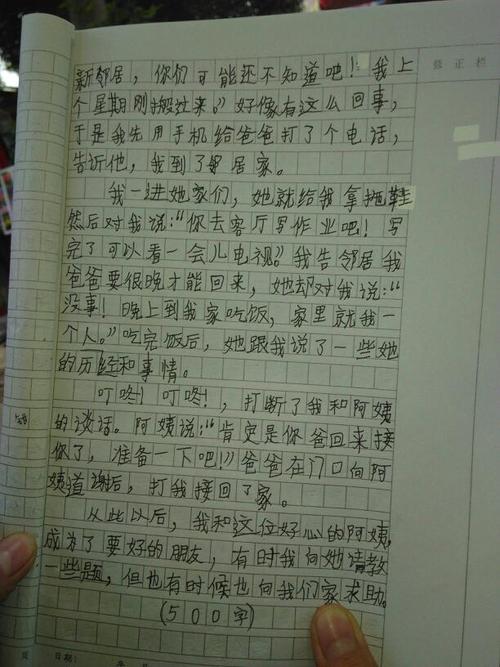 新邻居，你们可能还不知道吧！我上
个星期刚搬过来。”好像有这么回事，
于是我先用手机给爸爸打了个电话，
告诉他，我到了邻居家。
我一进她家们，她就给我拿拖鞋
然后对我说：“你去客厅写作业吧！写
完了可以看一会儿电视？我告邻居我
爸爸要很晚才能回来，她却对我说：“
没事！晚上到我家吃饭，家里就我一
个人。”吃完饭后，她跟我说了一些她
的历经和事情。
叮咚！叮咚！，打断了我和阿姨
的谈话。阿姨说：“肯定是你爸回来接
你了，准备一下吧！”爸爸在门口向阿
姨道谢后，打我接回了家。
从此以后，我和这位好心的阿姨，
成为了要好的朋友，有时我向她请教
一些题，但也有时候也向我们家求助。
（500字）
修正栏
日期：